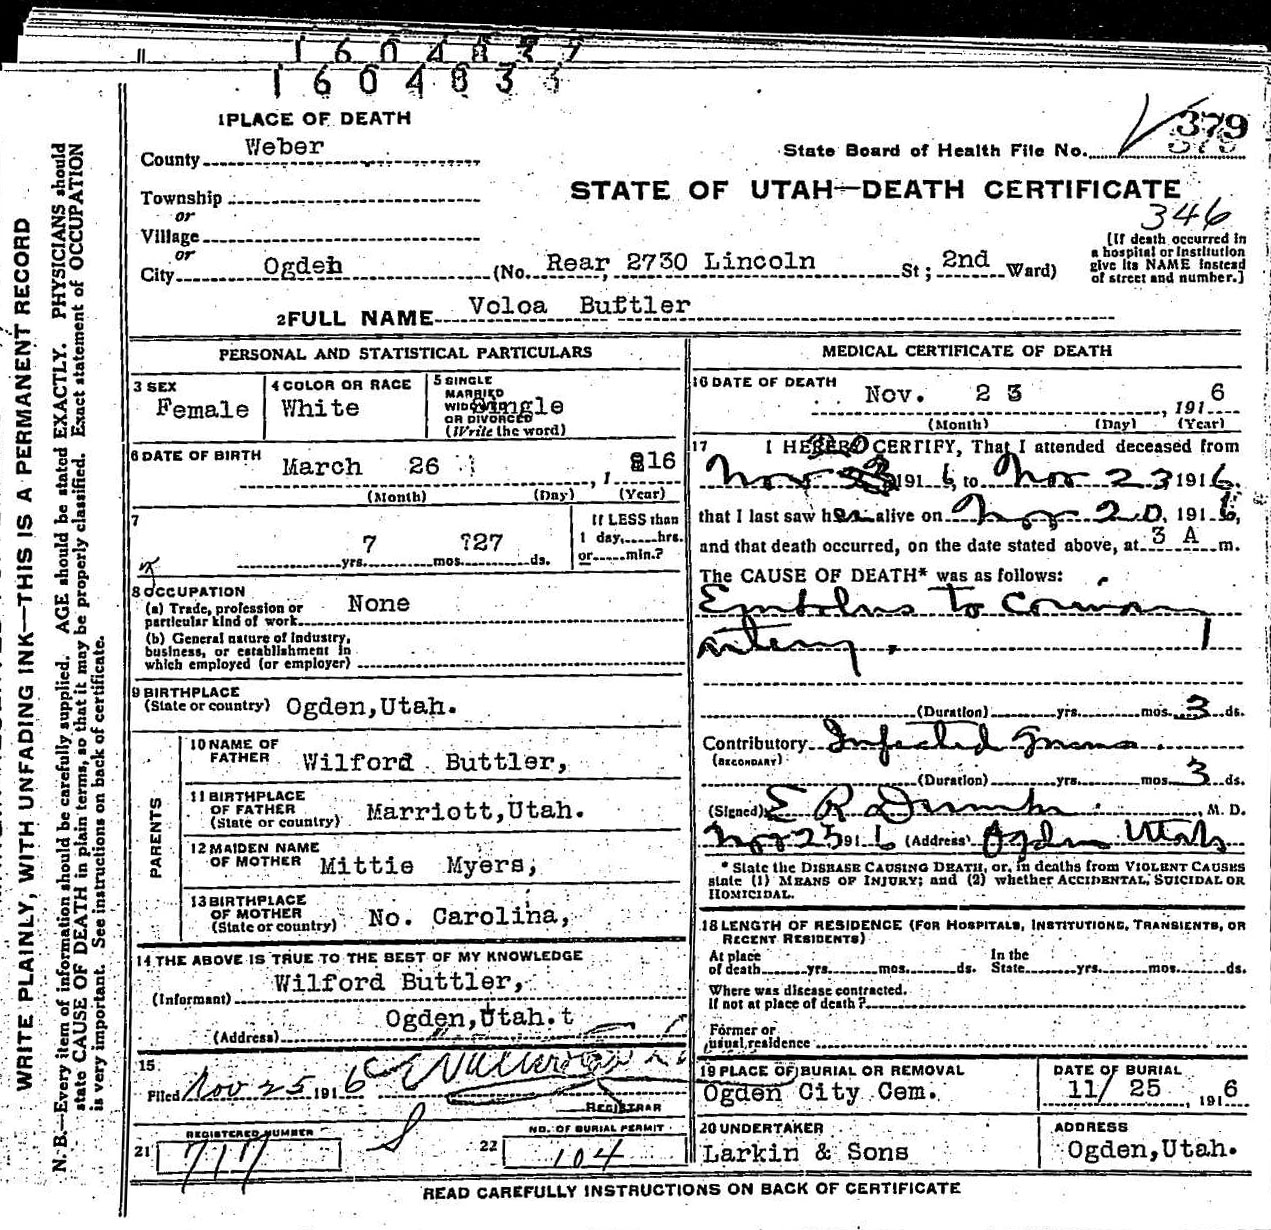 1604837
1604833
1 PLACE OF DEATH
County Weber
State Board of Health File No. 379
Township
or
STATE OF UTAH—DEATH CERTIFICATE
346
Village
or
City Ogden (No. Rear 2730 Lincoln St; 2nd Ward)
[If death occurred in
a hospital or institution
give its NAME instead
of street and number.]
2 FULL NAME Voloa Buttler
PERSONAL AND STATISTICAL PARTICULARS
3 SEX
Female
4 COLOR OR RACE
White
5 SINGLE
MARRIED
WIDOWED
OR DIVORCED
(Write the word)
Single
6 DATE OF BIRTH
March 26, 1 916
(Month) (Day) (Year)
7
7 yrs. mos. ?27 ds.
If LESS than
1 day, hrs.
or min.?
8 OCCUPATION
(a) Trade, profession or
particular kind of work None
(b) General nature of industry,
business, or establishment in
which employed (or employer)
9 BIRTHPLACE
(State or country) Ogden,Utah.
PARENTS
10 NAME OF
FATHER Wilford Buttler,
11 BIRTHPLACE
OF FATHER
(State or country) Marriott,Utah.
12 MAIDEN NAME
OF MOTHER Mittie Myers,
13 BIRTHPLACE
OF MOTHER
(State or country) No. Carolina,
14 THE ABOVE IS TRUE TO THE BEST OF MY KNOWLEDGE
(Informant) Wilford Buttler,
(Address) Ogden,Utah.t
15
Filed Nov 25 1916
REGISTRAR
REGISTERED NUMBER
21 717
NO. OF BURIAL PERMIT
22 104
MEDICAL CERTIFICATE OF DEATH
16 DATE OF DEATH
Nov. 23, 191 6
(Month) (Day) (Year)
17 I HEREBY CERTIFY, That I attended deceased from
Nov 191 6, to Nov 23, 191 6,
that I last saw her alive on Nov 20, 191 6,
and that death occurred, on the date stated above, at 3 A m.
The CAUSE OF DEATH* was as follows:
Embolus to Coronary
artery.
(Duration) yrs. mos. 3 ds.
Contributory Infected
(SECONDARY)
(Duration) yrs. mos. 3 ds.
(Signed) E R M. D.
Nov 25 191 6 (Address) Ogden Utah
* State the DISEASE CAUSING DEATH, or, in deaths from VIOLENT CAUSES
state (1) MEANS OF INJURY; and (2) whether ACCIDENTAL, SUICIDAL OR
HOMICIDAL.
18 LENGTH OF RESIDENCE (FOR HOSPITALS, INSTITUTIONS, TRANSIENTS, OR
RECENT RESIDENTS)
At place
of death yrs. mos. ds.
In the
State yrs. mos. ds.
Where was disease contracted.
If not at place of death?
Former or
usual residence
19 PLACE OF BURIAL OR REMOVAL
Ogden City Cem.
DATE OF BURIAL
11/ 25, 191 6
20 UNDERTAKER
Larkin & Sons
ADDRESS
Ogden,Utah.
READ CAREFULLY INSTRUCTIONS ON BACK OF CERTIFICATE
WRITE PLAINLY, WITH UNFADING INK—THIS IS A PERMANENT RECORD
N. B.—Every item of information should be carefully supplied. AGE should be stated EXACTLY. PHYSICIANS should
state CAUSE OF DEATH in plain terms, so that it may be properly classified. Exact statement of OCCUPATION
is very important. See instructions on back of certificate.